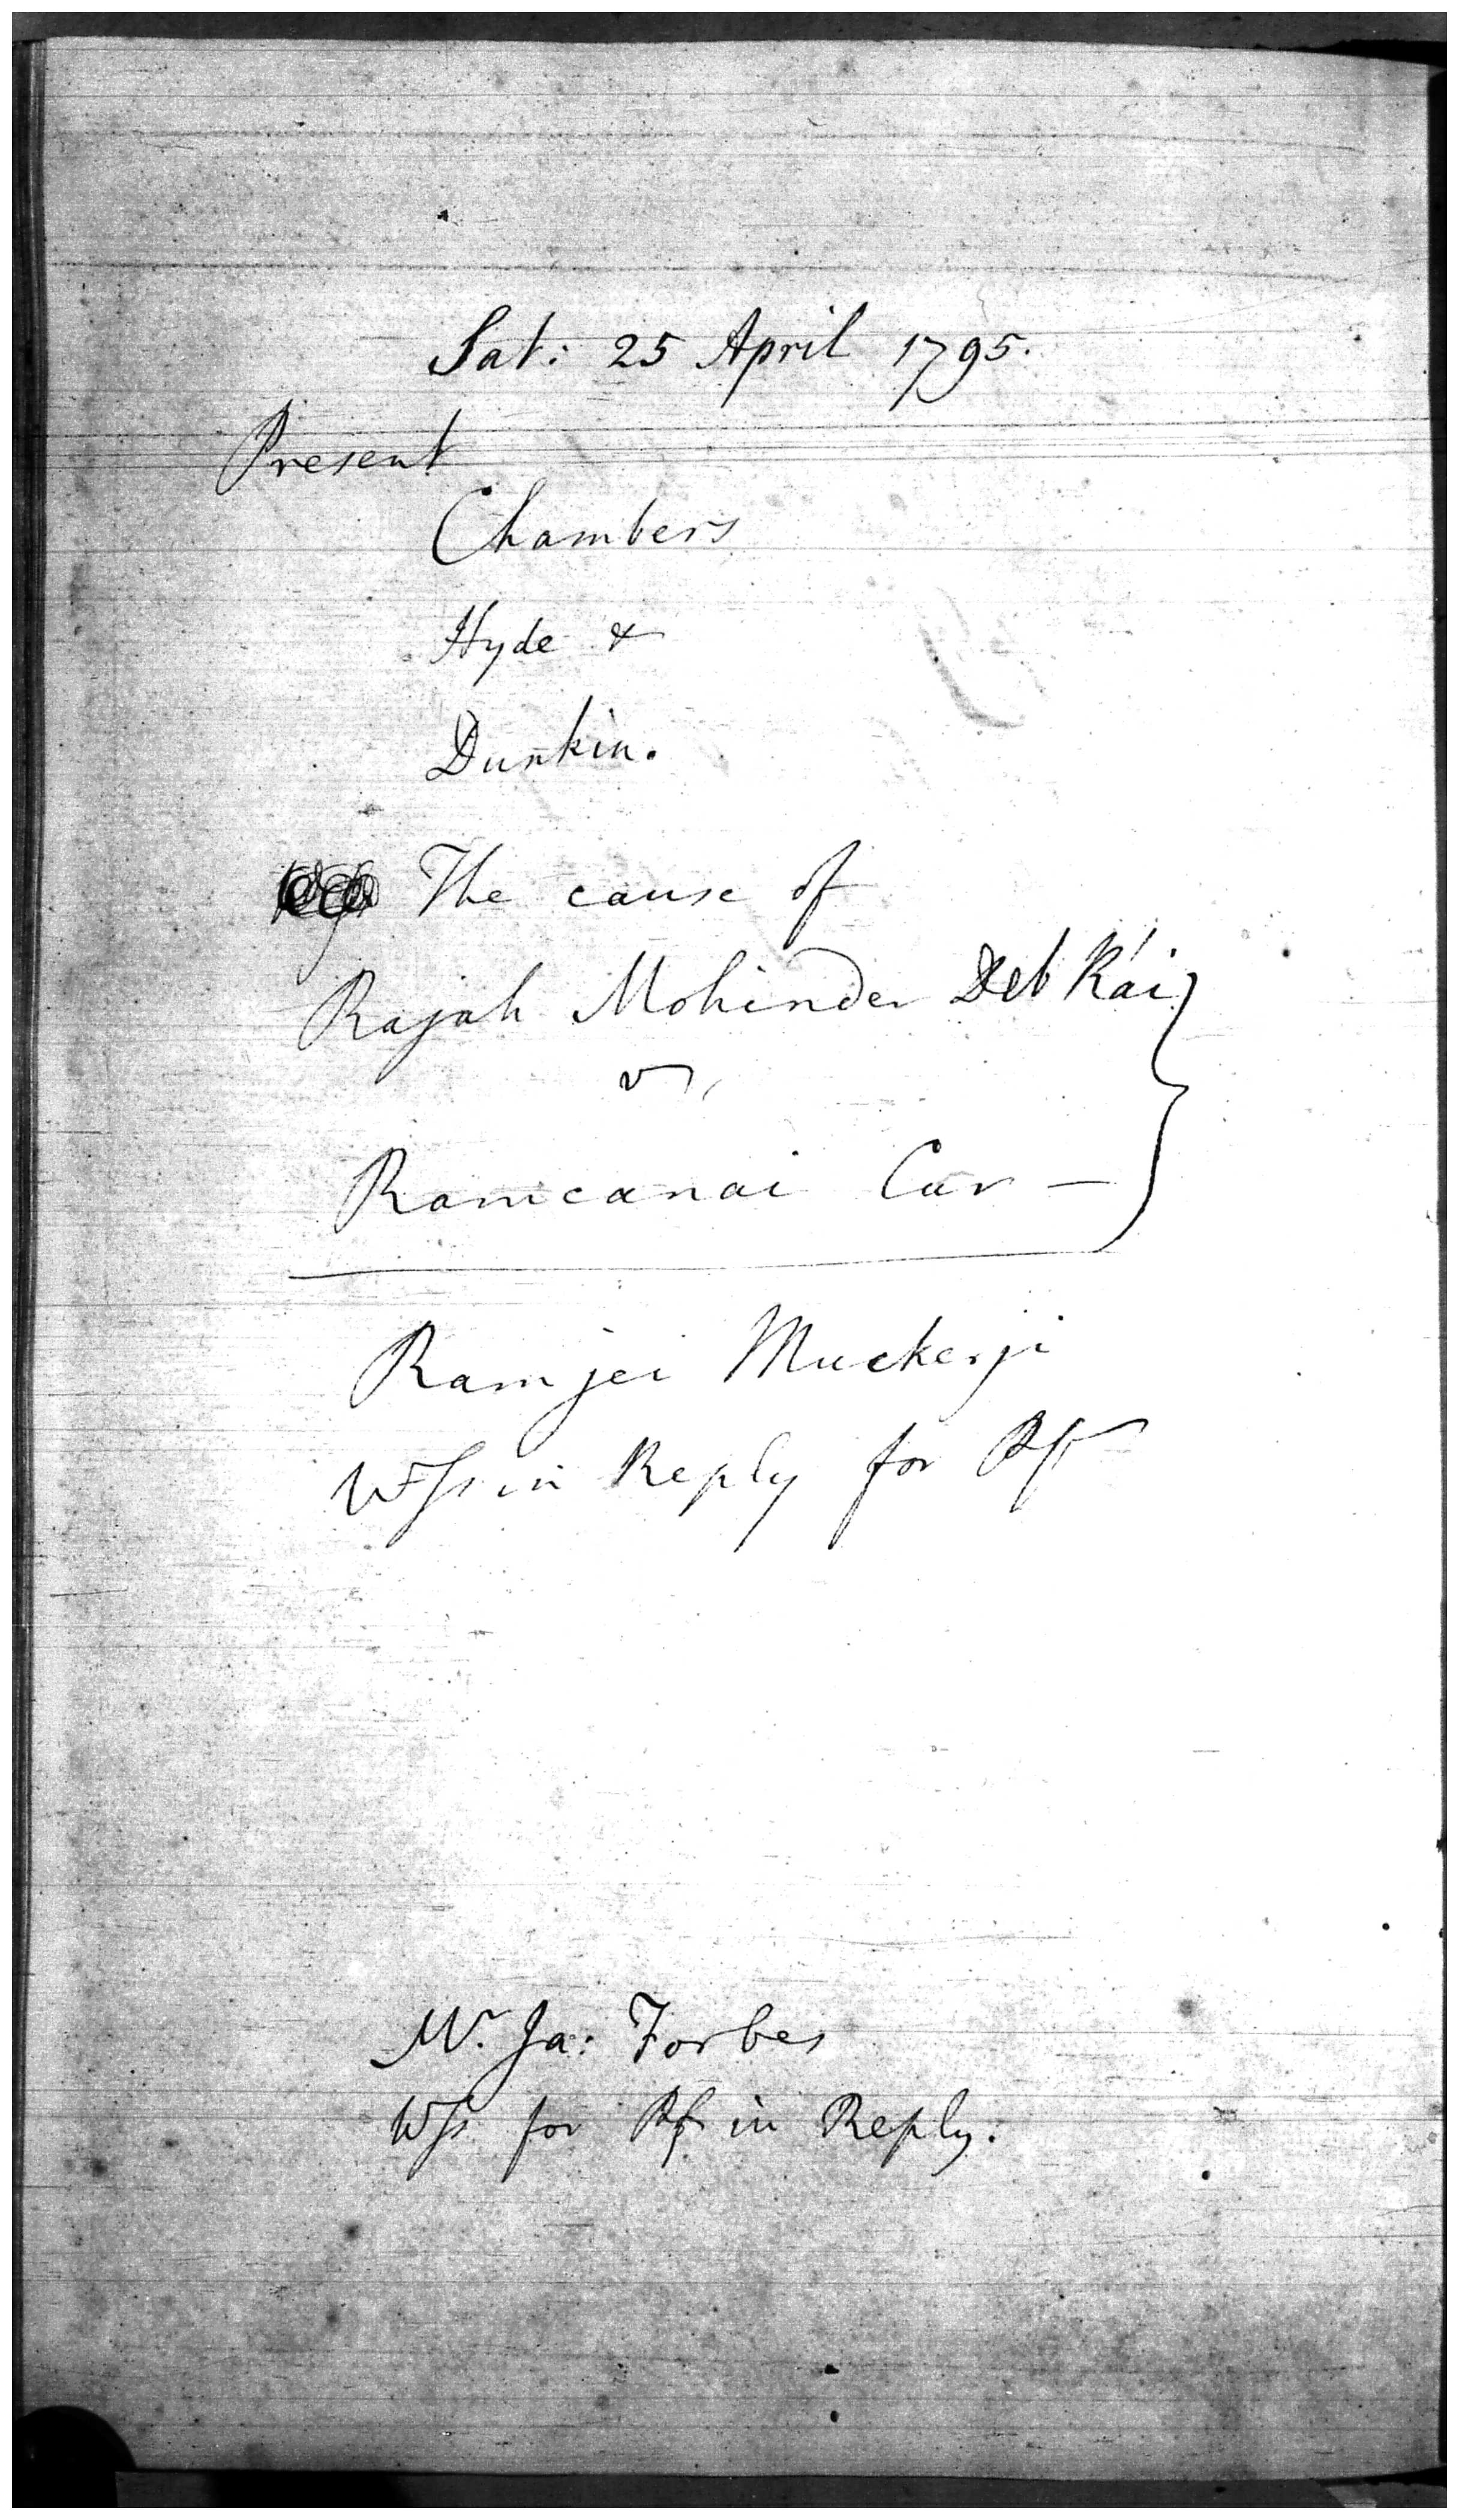 Sat: 25 April 1795.
Present
Chambers
Hyde &
Dunkin.
The cause of
Rajah Mohinder Deb Rái
vs,
Ramcanai Cur —
Ramjei Muckerji
Wss in Reply for Plf
Mr. Ja: Forbes
Wss for Plf in Reply.